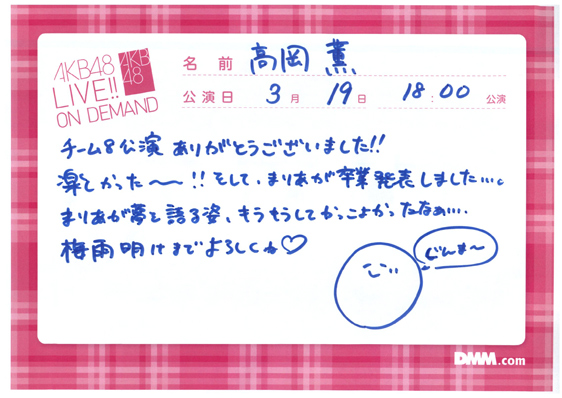 AKB48
LIVE!!
ON DEMAND
AKB
48
名前 高岡 薫
公演日 3月 19日 18:00 公演
チーム8公演 ありがとうございました!!
楽しかった〜〜!! そして、まりあが卒業発表しました…。
まりあが夢を語る姿、キラキラしてかっこよかったなぁ…。
梅雨明けまでよろしくね♡
ぐんま〜
DMM.com